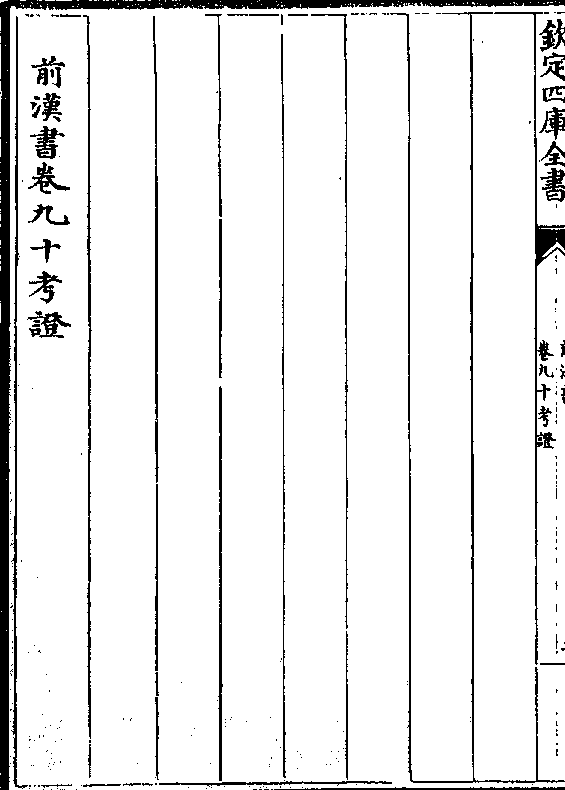 欽定四庫全書
卷九十考證
前漢書卷九十考證